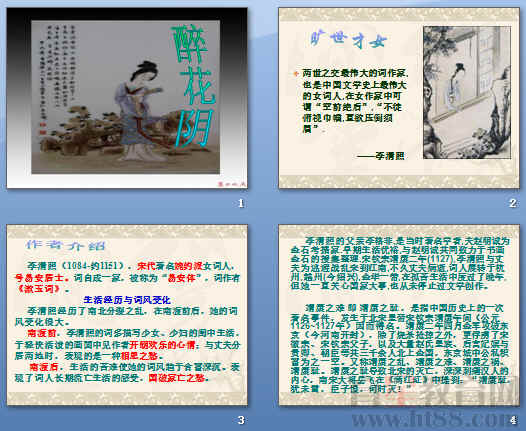 醉花阴
1
旷世才女
两世之交最伟大的词作家,
也是中国文学史上最伟大
的女词人,在女作家中可
谓“空前绝后”,“不徒
俯视巾帼,直欲压倒须
眉”.
——李清照
2
作者介绍
李清照(1084-约1151),宋代著名婉约派女词人,
号易安居士。词自成一家,被称为“易安体”,词作有
《漱玉词》。
生活经历与词风变化
李清照经历了南北分裂之乱,在南渡前后,她的词
风变化很大。
南渡前,李清照的词多描写少女、少妇的闺中生活,
于轻快活泼的画面中见作者开朗欢乐的心情;与丈夫分
居两地时,表现的是一种相思之愁。
南渡后,生活的苦难使她的词风趋于含蓄深沉,表
现了词人长期流亡生活的感受,国破家亡之愁。
3
李清照的父亲李格非,是当时著名学者,夫赵明诚为
金石考据家.早期生活优裕,与赵明诚共同致力于书画
金石的搜集整理;宋钦宗靖康二年(1127),李清照与丈
夫为逃避战乱来到江南,不久丈夫病逝,词人辗转于杭
州,越州(今绍兴),金华一带,在孤苦生活中度过了晚年,
但她一直关心国家大事,也从未停止过文学创作。
靖康之难即靖康之耻,是指中国历史上的一次
著名事件,发生于北宋皇帝宋钦宗靖康年间(公元
1126-1127年)因而得名。靖康二年四月金军攻破东
京(今河南开封),除了烧杀抢掠之外,更俘虏了宋
徽宗、宋钦宗父子,以及大量赵氏皇族、后宫妃嫔与
贵卿、朝臣等共三千余人北上金国,东京城中公私积
蓄为之一空。又称靖康之乱、靖康之难、靖康之祸、
靖康耻。靖康之耻导致北宋的灭亡,深深刺痛汉人的
内心,南宋大将岳飞在《满江红》中提到:“靖康耻,
犹未雪,臣子恨,何时灭!”
教育网
www.ht88.com
4